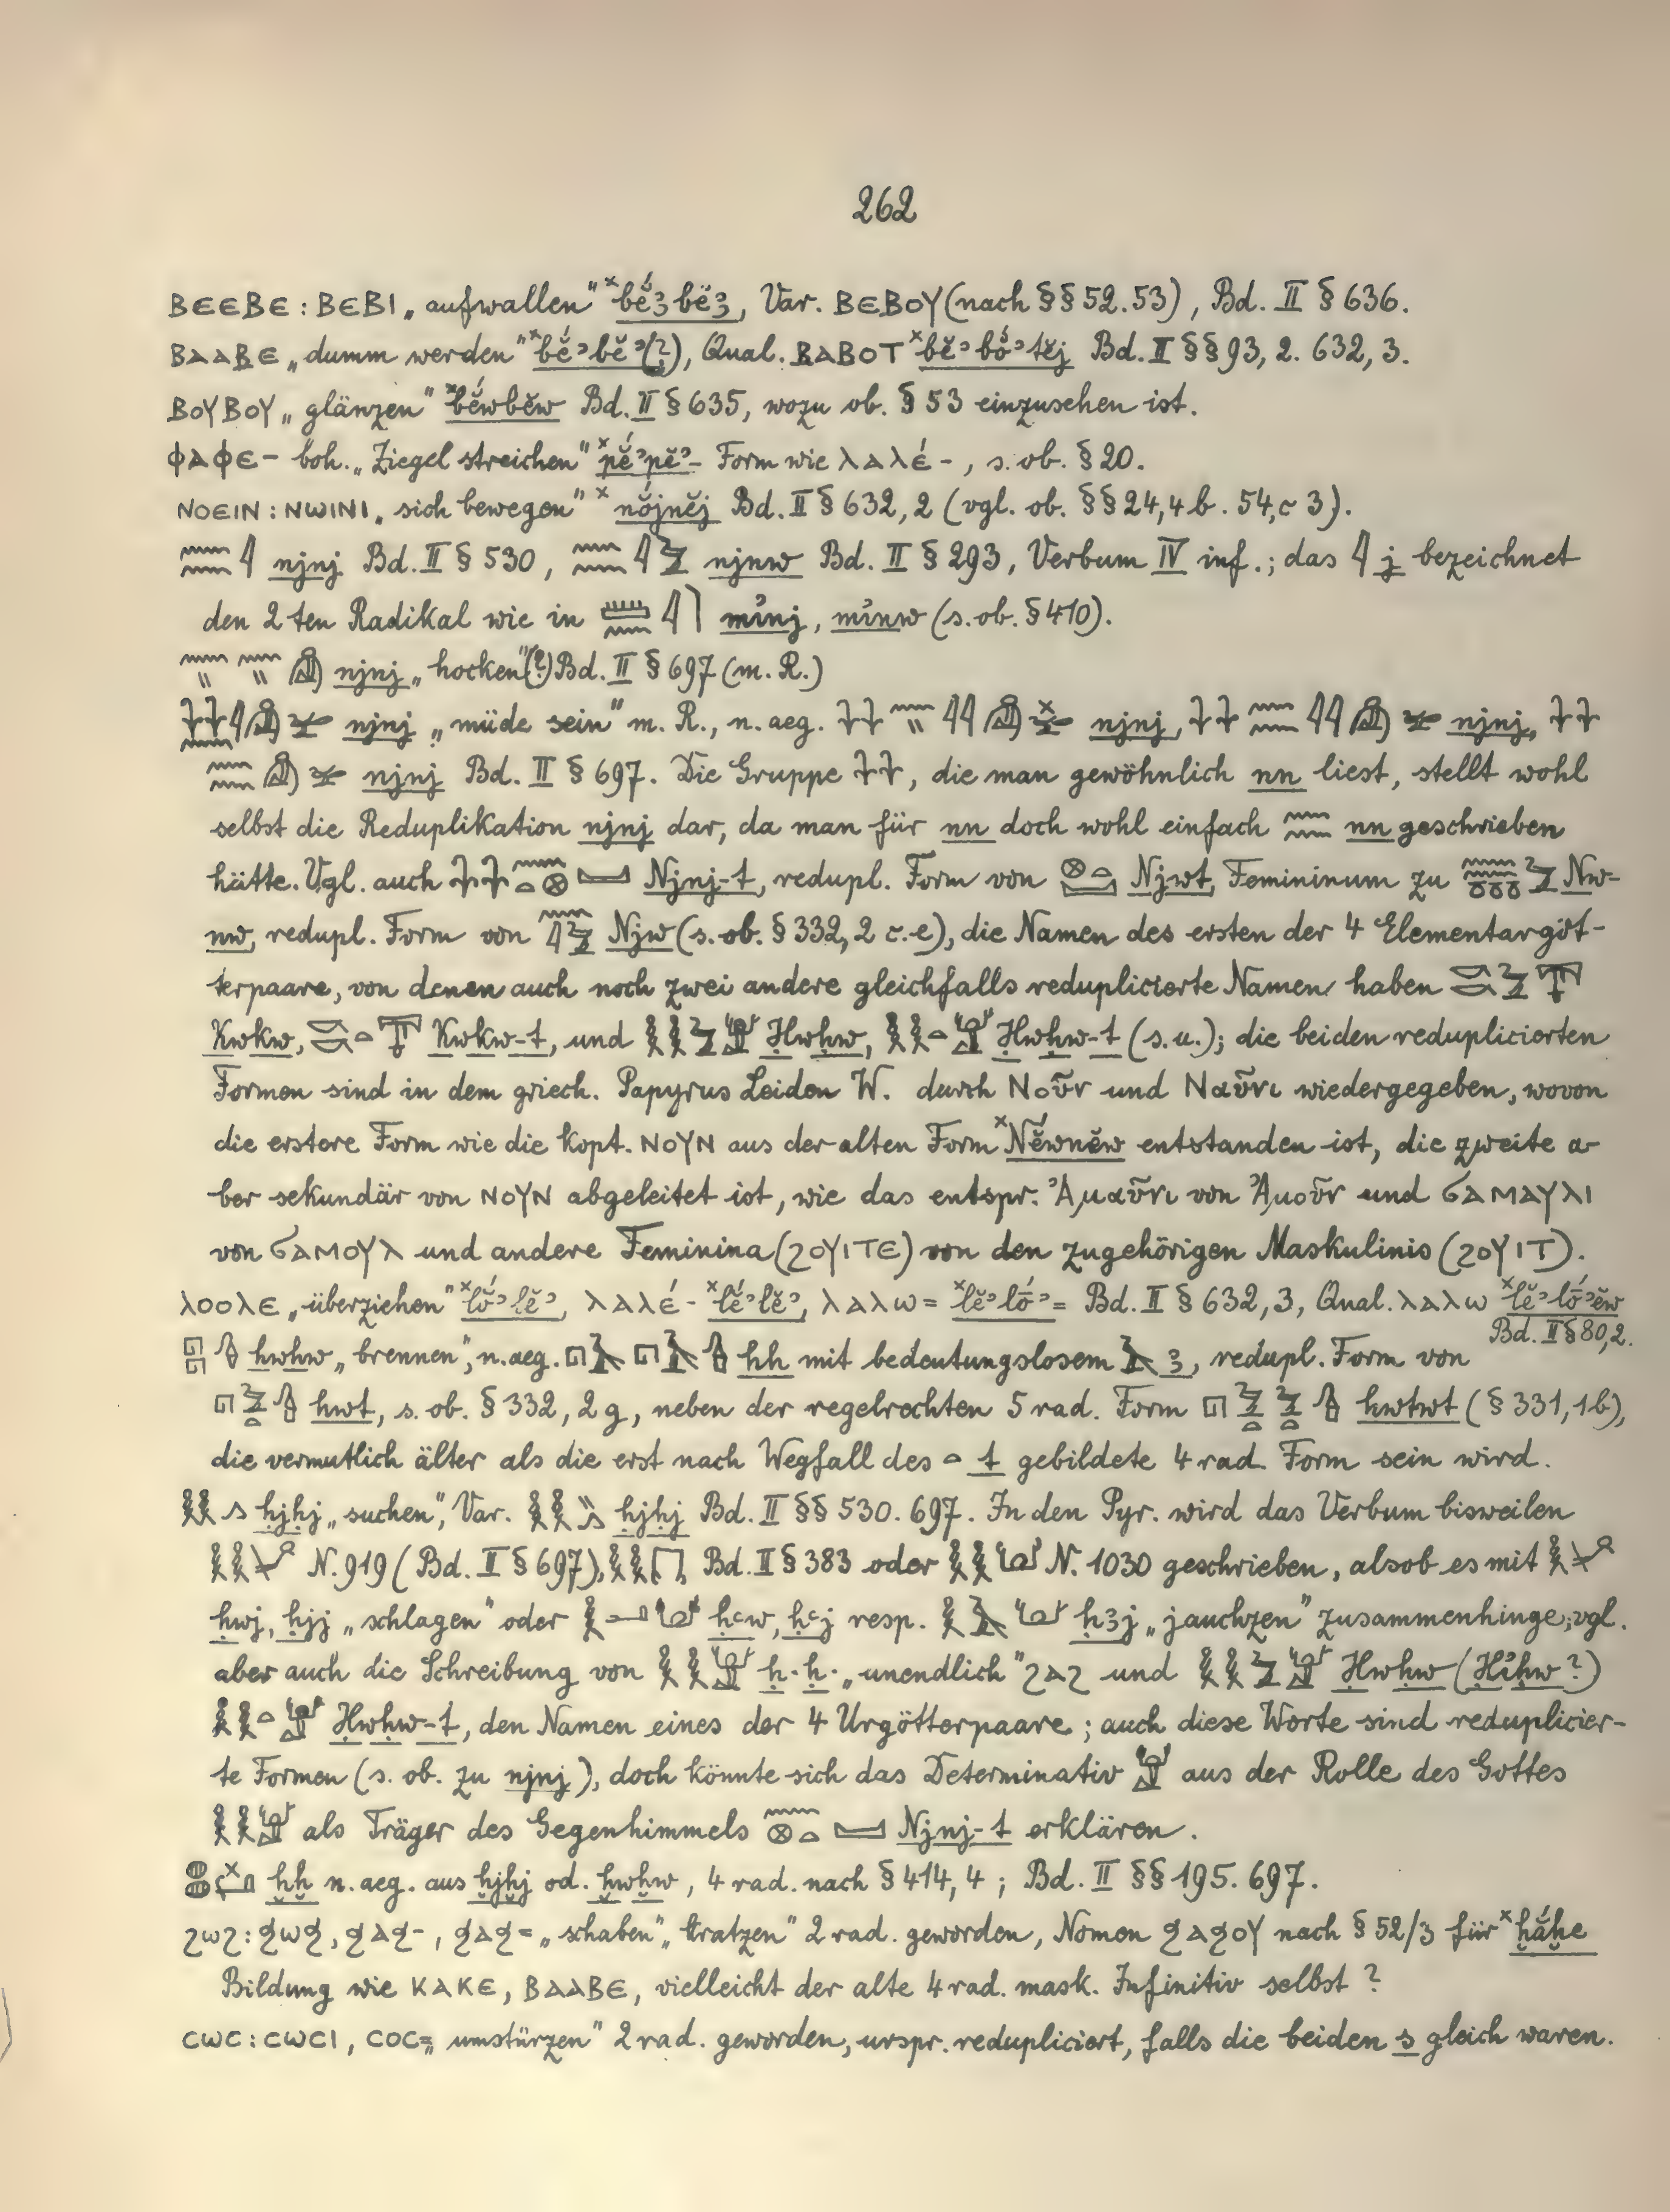 262
ⲂⲈⲈⲂⲈ : ⲂⲈⲂⲒ „aufwallen" ˣbĕ́ꜣbĕꜣ, Var. ⲂⲈⲂⲞⲨ (nach §§ 52. 53), Bd. II § 636.
ⲂⲀⲀⲂⲈ „dumm werden" ˣbĕ́ʾbĕʾ(?), Qual. ⲂⲀⲂⲞⲦ ˣbĕʾbŏ́ʾtĕj Bd. II §§ 93, 2. 632, 3.
ⲂⲞⲨⲂⲞⲨ „glänzen" ˣbĕ́wbĕw Bd. II § 635, wozu ob. § 53 einzusehen ist.
ⲪⲀⲪⲈ- boh. „Ziegel streichen" ˣpĕ́ʾpĕʾ- Form wie ⲖⲀⲖⲈ́-, s. ob. § 20.
ⲚⲞⲈⲒⲚ : ⲚⲰⲒⲚⲒ „sich bewegen" ˣnŏ́jnĕj Bd. II § 632, 2 (vgl. ob. §§ 24, 4b. 54, c 3).
𓈖𓈖𓇋 njnj Bd. II § 530, 𓈖𓈖𓇋𓅱 njnw Bd. II § 293, Verbum IV inf.; das 𓇋 j bezeichnet
den 2ten Radikal wie in 𓏠𓈖𓇋 mỉnj, mỉnw (s. ob. § 410).
njnj „hocken"(?) Bd. II § 697 (m. R.)
njnj „müde sein" m. R., n. aeg. njnj, njnj, 𓇓𓇓
njnj Bd. II § 697. Die Gruppe 𓇓𓇓, die man gewöhnlich nn liest, stellt wohl
selbst die Reduplikation njnj dar, da man für nn doch wohl einfach 𓈖𓈖 nn geschrieben
hätte. Vgl. auch Njnj-t, redupl. Form von Njwt, Femininum zu Nw-
nw, redupl. Form von Njw (s. ob. § 332, 2 c.-e), die Namen des ersten der 4 Elementargöt-
terpaare, von denen auch noch zwei andere gleichfalls reduplicierte Namen haben
Kwkw, Kwkw-t, und Ḥwḥw, Ḥwḥw-t (s. u.); die beiden reduplicierten
Formen sind in dem griech. Papyrus Leiden W. durch Νοῦν und Ναῦνι wiedergegeben, wovon
die erstere Form wie die kopt. ⲚⲞⲨⲚ aus der alten Form ˣNĕ́wnĕw entstanden ist, die zweite a-
ber sekundär von ⲚⲞⲨⲚ abgeleitet ist, wie das entspr. Ἀμαῦνι von Ἀμοῦν und ϬⲀⲘⲀⲨⲖⲒ
von ϬⲀⲘⲞⲨⲖ und andere Feminina (ϨⲞⲨⲒⲦⲈ) von den zugehörigen Maskulinis (ϨⲞⲨⲒⲦ).
ⲖⲞⲞⲖⲈ „überziehen" ˣlŏ́ʾlĕʾ, ⲖⲀⲖⲈ́- ˣlĕ́ʾlĕʾ, ⲖⲀⲖⲰ= ˣlĕʾlṓʾ= Bd. II § 632, 3, Qual. ⲖⲀⲖⲰ ˣlĕʾlṓʾĕw
Bd. II § 80, 2.
𓉔𓉔𓊮 hwhw „brennen", n. aeg. 𓉔𓄿𓉔𓄿𓊮 hh mit bedeutungslosem 𓄿 ꜣ, redupl. Form von
𓉔𓅱𓏏𓊮 hwt, s. ob. § 332, 2 g, neben der regelrechten 5 rad. Form 𓉔𓅱𓏏𓅱𓏏𓊮 hwtwt (§ 331, 1b),
die vermutlich älter als die erst nach Wegfall des 𓏏 t gebildete 4 rad. Form sein wird.
𓎛𓎛𓂻 ḥjḥj „suchen", Var. 𓎛𓎛𓏭𓂻 ḥjḥj Bd. II §§ 530. 697. In den Pyr. wird das Verbum bisweilen
N. 919 (Bd. II § 697), 𓎛𓎛 Bd. II § 383 oder 𓎛𓎛 N. 1030 geschrieben, alsob es mit
ḥwj, ḥjj „schlagen" oder ḥꜥw, ḥꜥj resp. ḥꜣj „jauchzen" zusammenhinge; vgl.
aber auch die Schreibung von 𓎛𓎛𓁨 ḥ·ḥ· „unendlich" ϨⲀϨ und 𓎛𓎛𓅱𓁨 Ḥwḥw (Ḥỉḥw?)
𓎛𓎛𓏏𓁨 Ḥwḥw-t, den Namen eines der 4 Urgötterpaare; auch diese Worte sind reduplicier-
te Formen (s. ob. zu njnj), doch könnte sich das Determinativ 𓁨 aus der Rolle des Gottes
𓎛𓎛𓁨 als Träger des Gegenhimmels Njnj-t erklären.
ḫḫ n. aeg. aus ḫjḫj od. ḫwḫw, 4 rad. nach § 414, 4; Bd. II §§ 195. 697.
ϨⲰϨ : ϧⲰϧ, ϧⲀϧ-, ϧⲀϧ= „schaben", „kratzen" 2 rad. geworden, Nomen ϧⲀϧⲞⲨ nach § 52/3 für ˣḫắḫe
Bildung wie ⲔⲀⲔⲈ, ⲂⲀⲀⲂⲈ, vielleicht der alte 4 rad. mask. Infinitiv selbst?
ⲤⲰⲤ : ⲤⲰⲤⲒ, ⲤⲞⲤ= „umstürzen" 2 rad. geworden, urspr. redupliciert, falls die beiden s gleich waren.